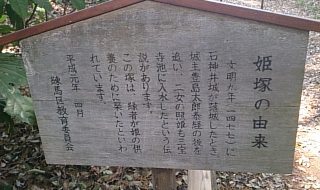 姫塚の由来
文明九年（一四七七）に
石神井城が落城したとき
城主豊島太郎泰経の後を
追い、二女の照姫も三宝
寺池に入水したという伝
説があります。
この塚は、縁者が姫の供
養のために築いたといわ
れています。
平成元年　四月
練馬区教育委員会